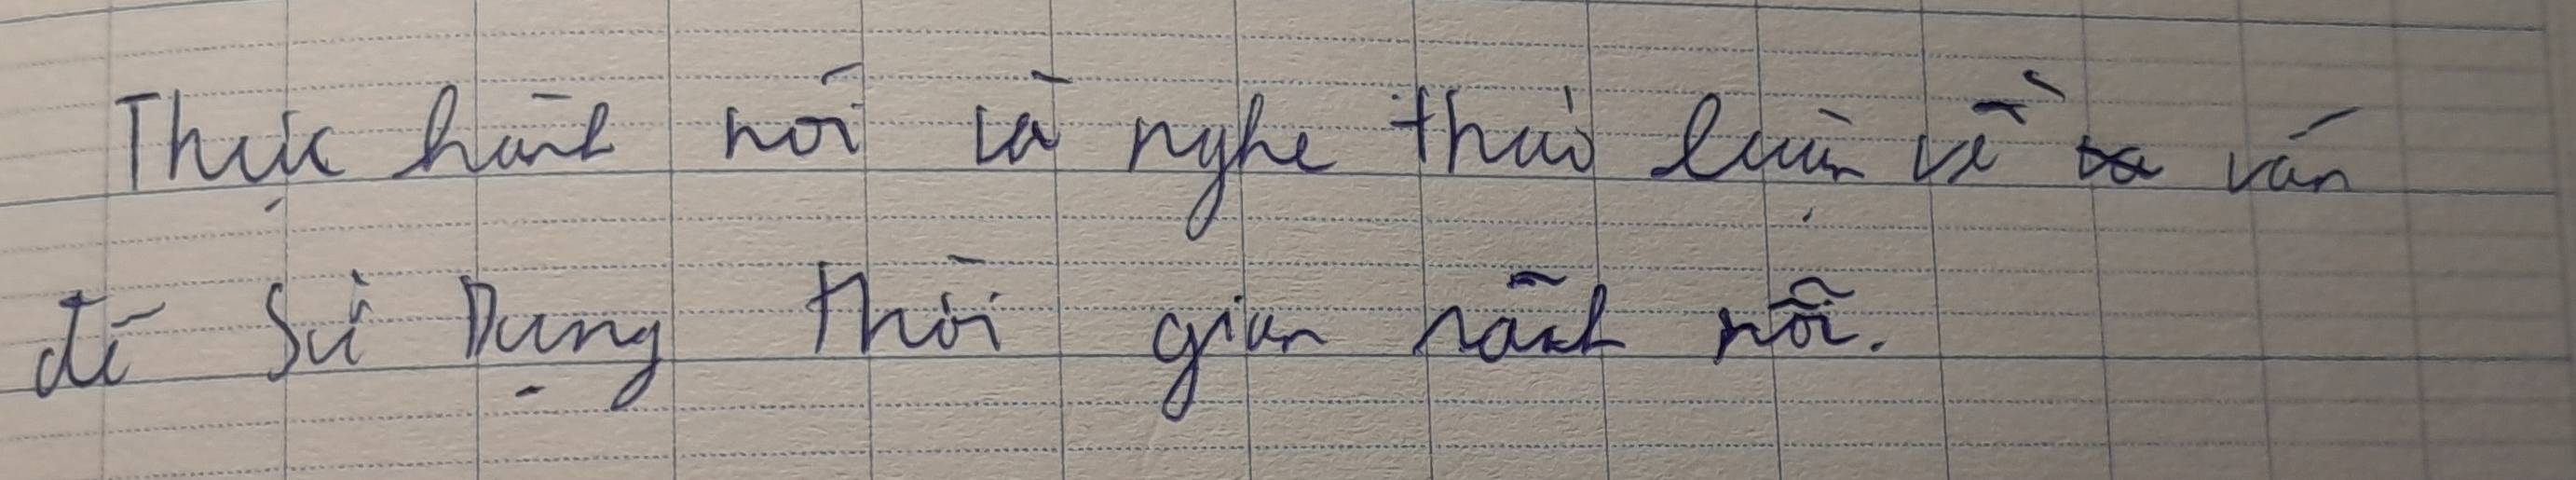 Thực hành nói và nghe thảo luận về vấn
đề Sử Dụng thời gian rảnh rỗi.